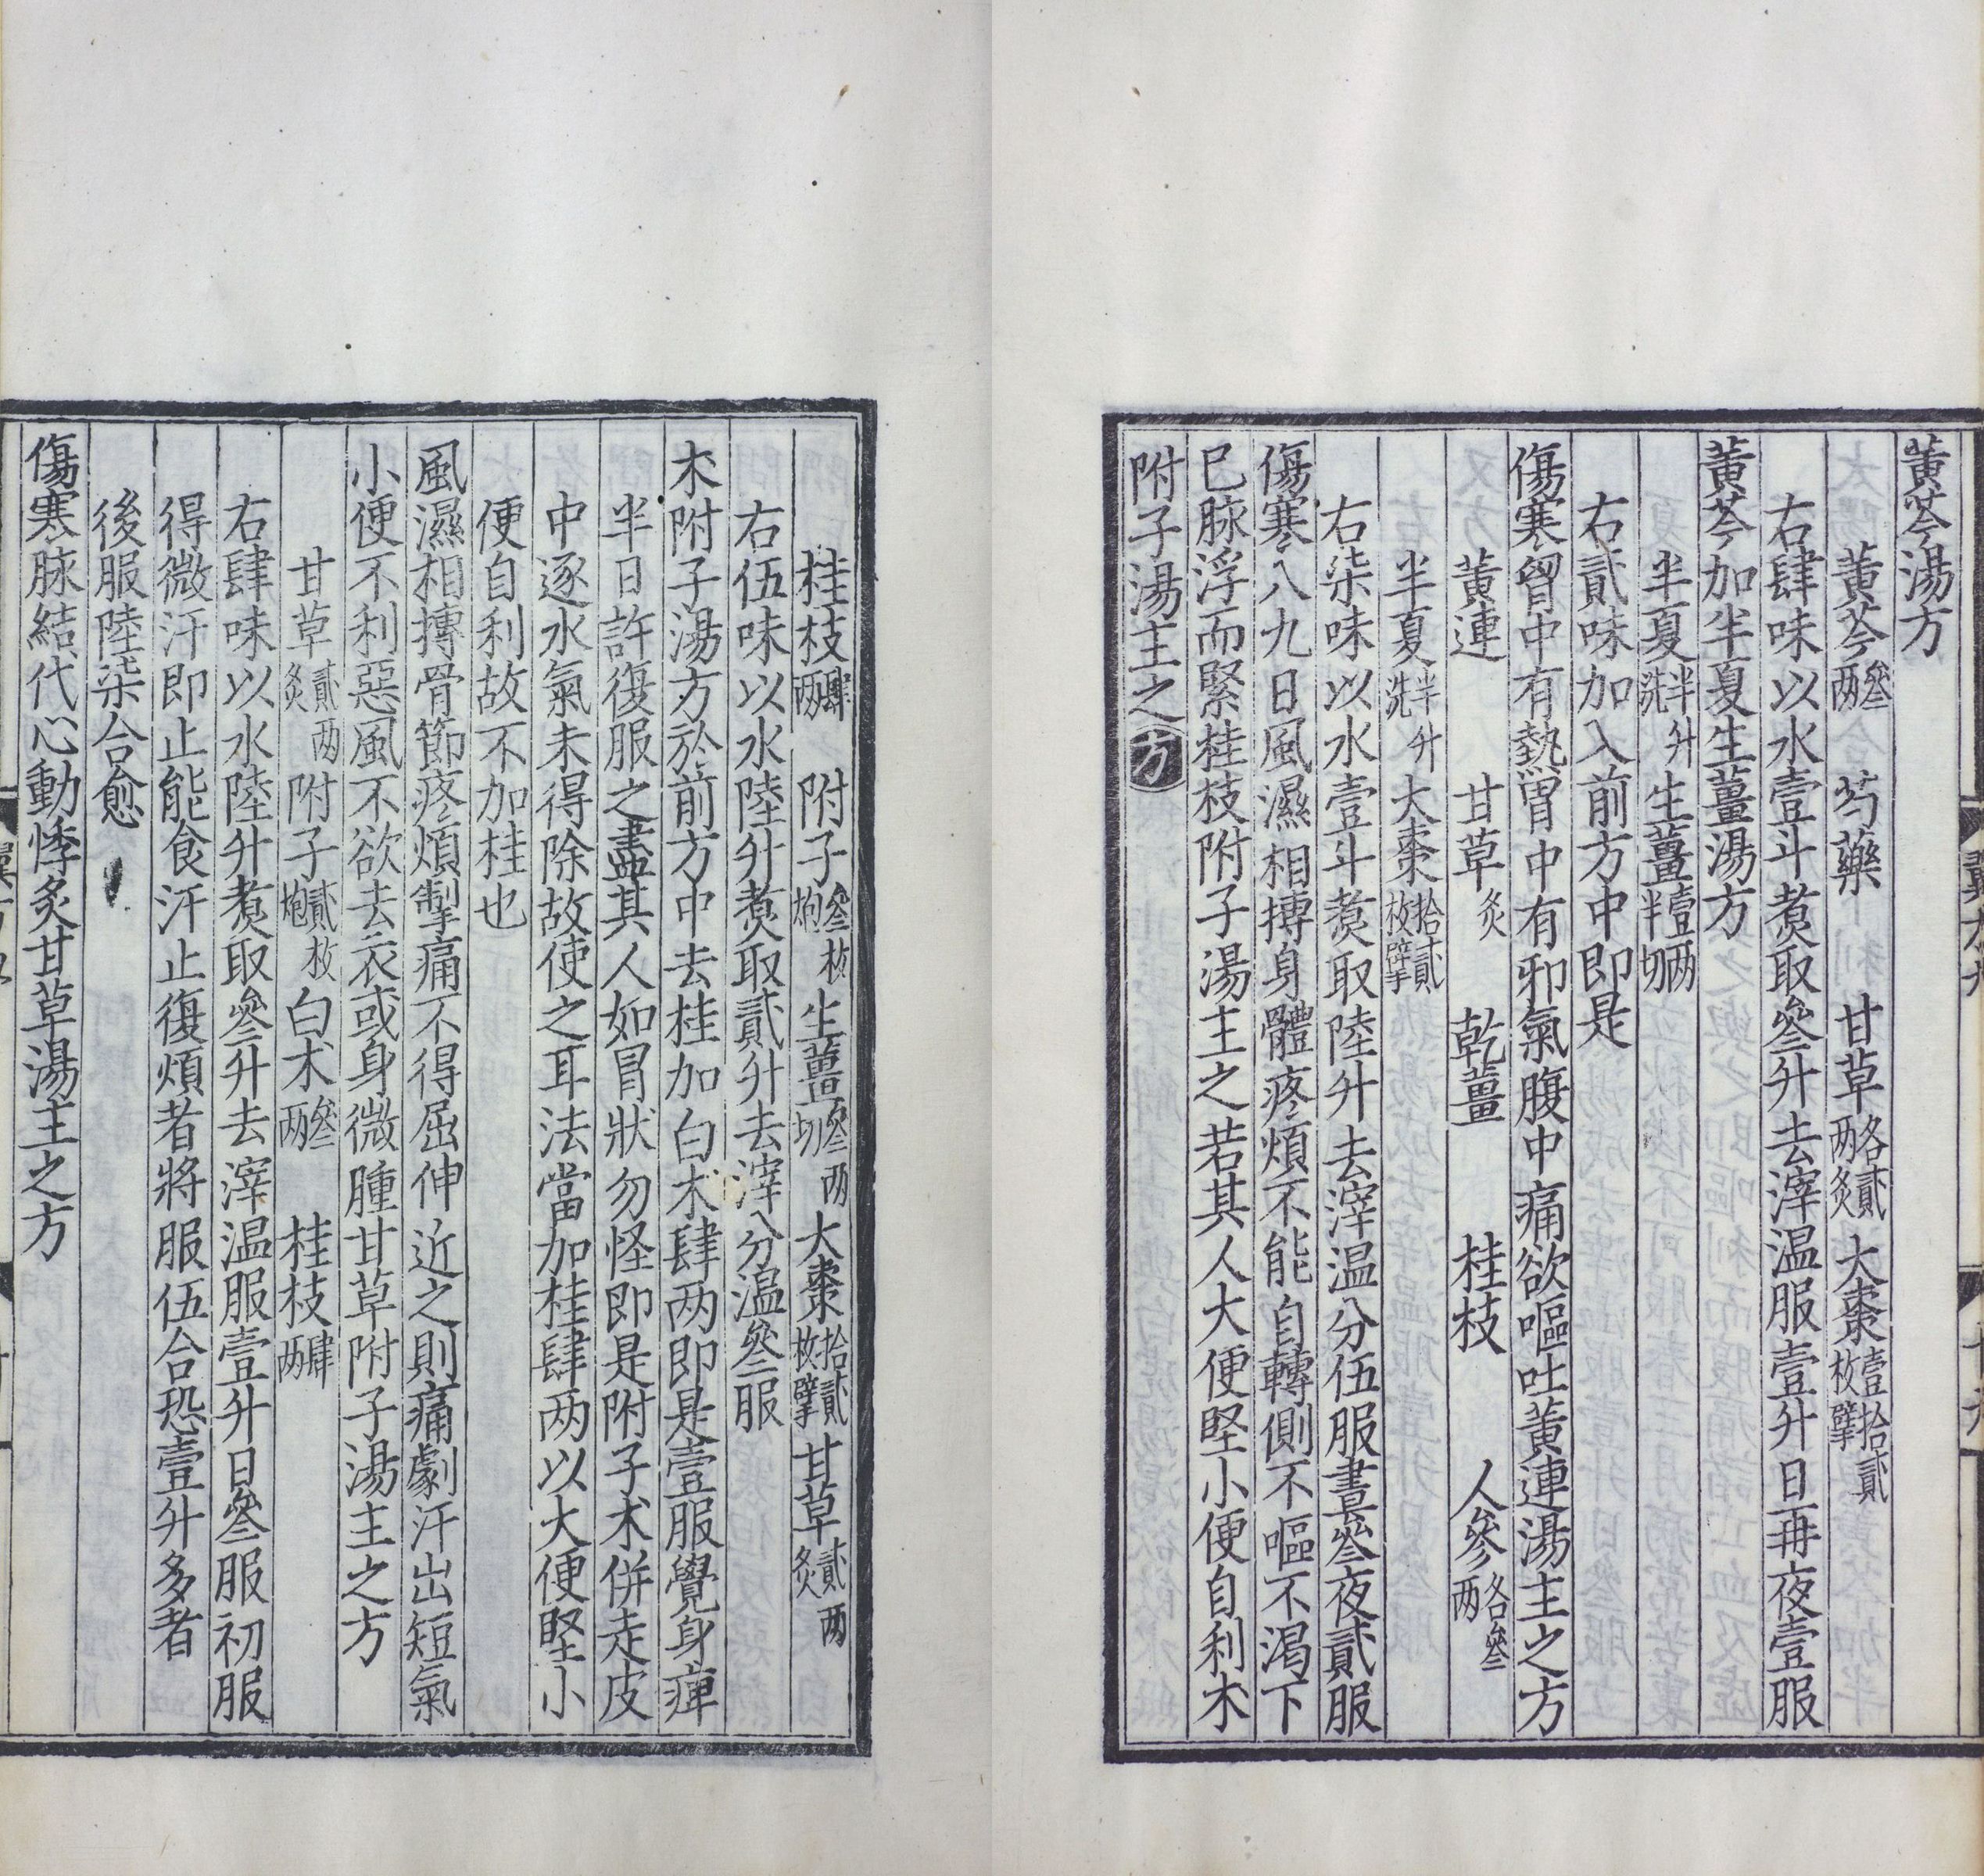 黃芩湯方
黃芩叄两 芍藥 甘草各貳两炙 大棗壹拾貳枚擘
右肆味以水壹斗煑取叄升去滓温服壹升日再夜壹服
黃芩加半夏生薑湯方
半夏半升洗 生薑壹两半切
右貳味加入前方中即是
傷寒胷中有熱胃中有邪氣腹中痛欲嘔吐黃連湯主之方
黃連 甘草炙 乾薑 桂枝 人參各叄两
半夏半升洗 大棗拾貳枚擘
右柒味以水壹斗煑取陸升去滓温分伍服晝叄夜貳服
傷寒八九日風濕相搏身體疼煩不能自轉側不嘔不渴下
已脉浮而緊桂枝附子湯主之若其人大便堅小便自利术
附子湯主之方
桂枝肆两 附子叄枚炮 生薑叄两切 大棗拾貳枚擘 甘草貳两炙
右伍味以水陸升煑取貳升去滓分温叄服
术附子湯方於前方中去桂加白术肆两即是壹服覺身痺
半日許復服之盡其人如冒狀勿怪即是附子术併走皮
中逐水氣未得除故使之耳法當加桂肆两以大便堅小
便自利故不加桂也
風濕相搏骨節疼煩掣痛不得屈伸近之則痛劇汗出短氣
小便不利惡風不欲去衣或身微腫甘草附子湯主之方
甘草貳两炙 附子貳枚炮 白术叄两 桂枝肆两
右肆味以水陸升煑取叄升去滓温服壹升日叄服初服
得微汗即止能食汗止復煩者將服伍合恐壹升多者
後服陸柒合愈
傷寒脉結代心動悸炙甘草湯主之方